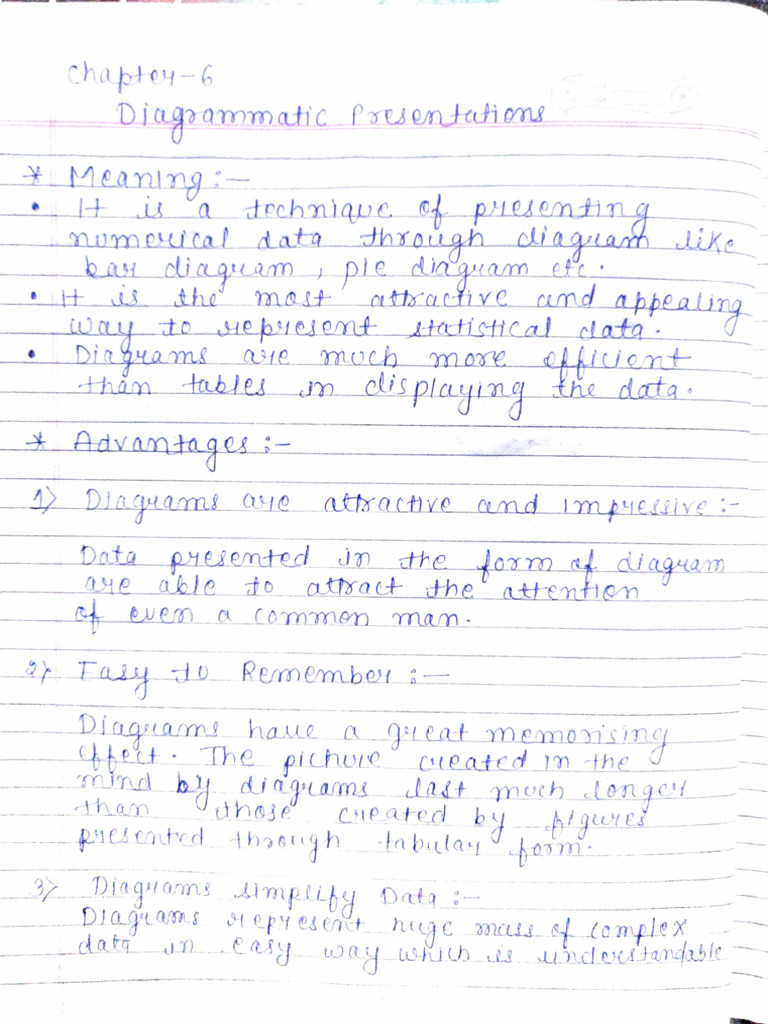 Chapter-6
Diagrammatic Presentations
* Meaning :-
• It is a technique of presenting
numerical data through diagram like
bar diagram, pie diagram etc.
• It is the most attractive and appealing
way to represent statistical data.
• Diagrams are much more efficient
than tables in displaying the data.
* Advantages :-
1) Diagrams are attractive and impressive :-
Data presented in the form of diagram
are able to attract the attention
of even a common man.
2) Easy to Remember :-
Diagrams have a great memorising
effect. The picture created in the
mind by diagrams last much longer
than those created by figures
presented through tabular form.
3) Diagrams simplify Data :-
Diagrams represent huge mass of complex
data in easy way which is understandable